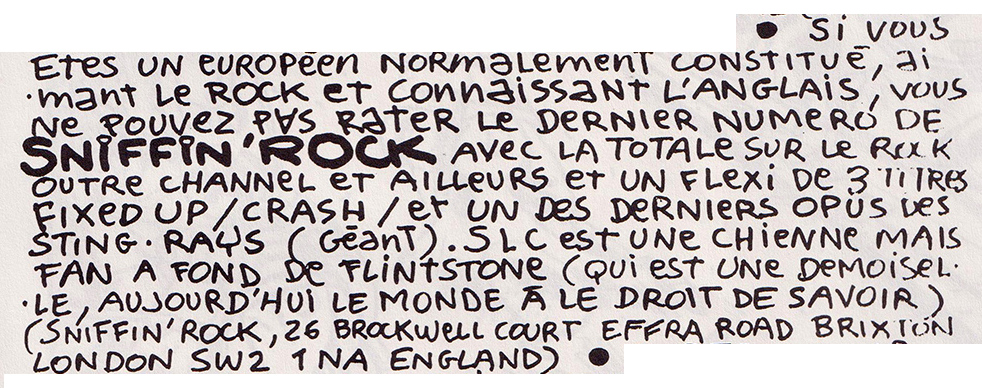 ● Si VOUS
ETES UN EUROPéen NORMALEMENT CONSTITUÉ, Ai
·MANT LE ROCK ET CONNAISSANT L'ANGLAIS, VOUS
NE POUVEZ PAS RATER LE DERNIER NUMERO DE
SNIFFIN'ROCK AVEC LA TOTALE SUR LE ROCK
OUTRE CHANNEL ET AILLEURS ET UN FLEXI DE 3 TITRES
FIXED UP/CRASH/ET UN DES DERNIERS OPUS DES
STING·RAYS (GÉANT). SLC EST UNE CHIENNE MAIS
FAN A FOND DE FLINTSTONE (QUI EST UNE DEMOISEL·
·LE, AUJOURD'HUI LE MONDE À LE DROIT DE SAVOIR)
(SNIFFIN'ROCK, 26 BROCKWELL COURT EFFRA ROAD BRIXTON
LONDON SW2 1NA ENGLAND) ●